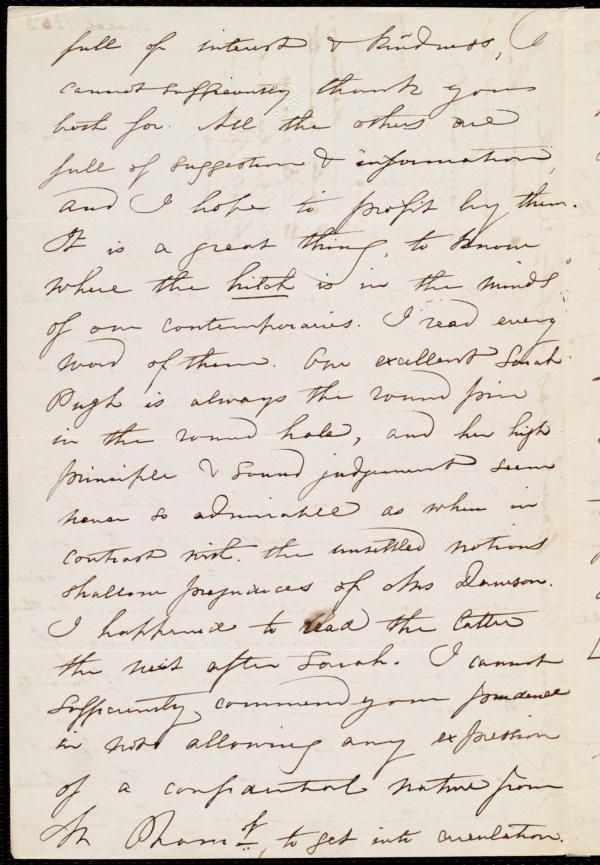 full of interest & kindness, I
cannot sufficiently thank you
both for. All the others are
full of suggestion & information,
and I hope to profit by them.
It is a great thing, to know
where the hitch is in the minds
of our contemporaries. I read every
word of them. Our excellent Sarah
Pugh is always the round pin
in the round hole, and her high
principle & sound judgement seem
never so admirable as when in
contrast with the unsettled notions
shallow prejudices of Mrs Dawson.
I happened to read the latter
the next after Sarah. I cannot
sufficiently commend your prudence
in not allowing any expression
of a confidential nature from
to get into circulation.